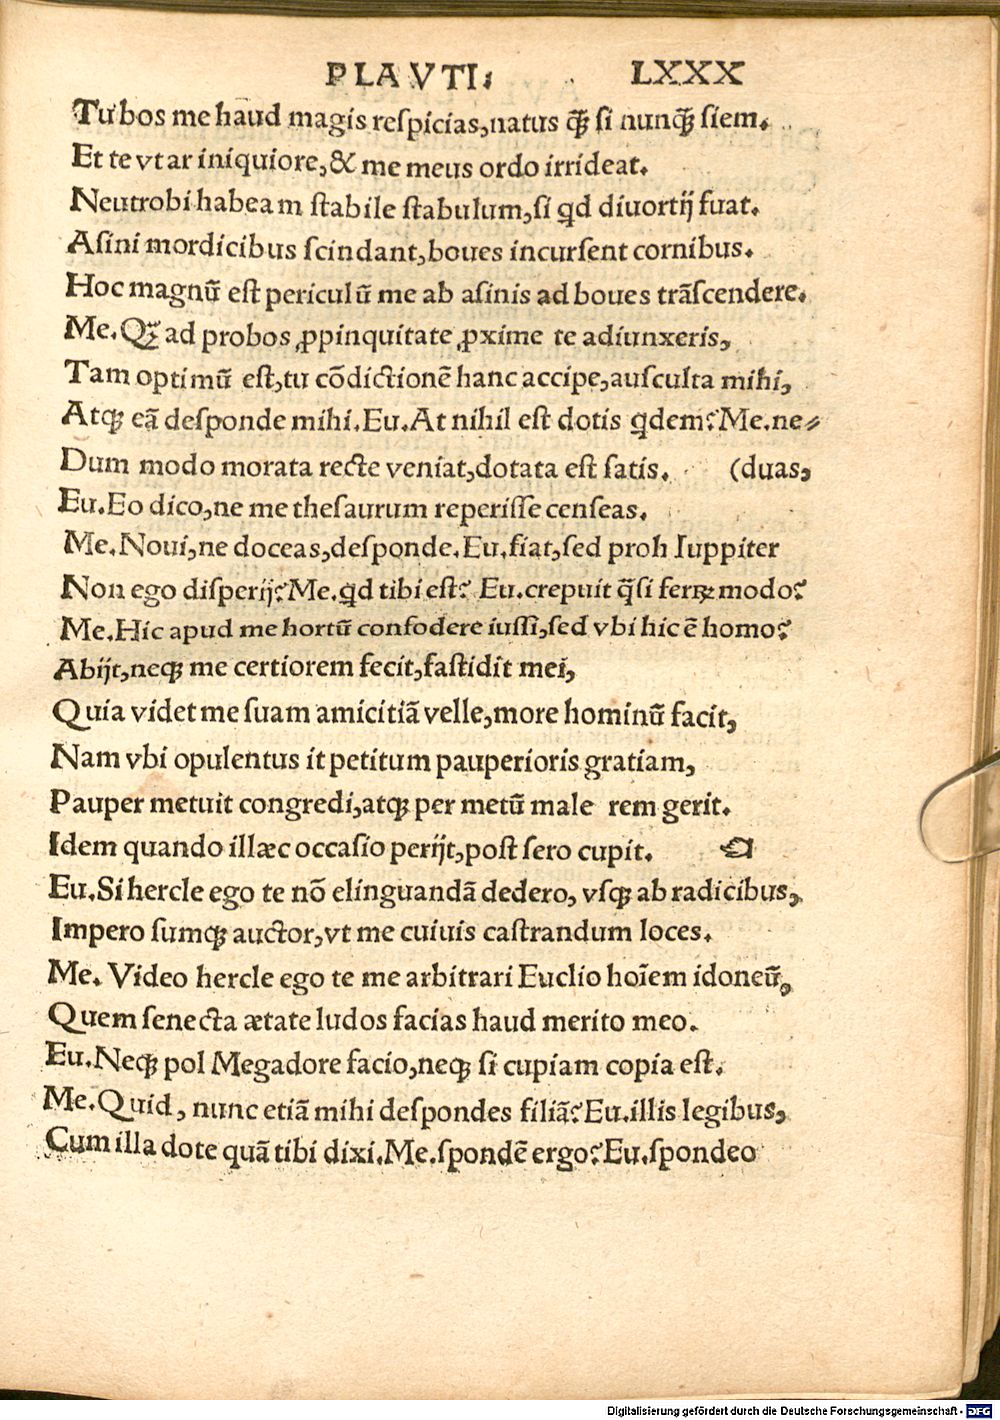 PLAVTI: LXXX
Tu bos me haud magis reſpicias,natus q̃ꝫ ſi nunq̃ꝫ ſiem.
Et te vtar iniquiore,& me meus ordo irrideat.
Neutrobi habeam ſtabile ſtabulum,ſi qd diuortij fuat.
Aſini mordicibus ſcindant,boues incurſent cornibus.
Hoc magnũ eſt periculũ me ab aſinis ad boues trãſcendere.
Me.Qꝫ ad probos ꝓpinquitate ꝓxime te adiunxeris,
Tam optimũ eſt,tu cõdictionẽ hanc accipe,auſculta mihi,
Atqꝫ eã deſponde mihi.Eu.At nihil eſt dotis qdem?Me.ne⸗
Dum modo morata recte veniat,dotata eſt ſatis. (duas,
Eu.Eo dico,ne me theſaurum reperiſſe cenſeas.
Me.Noui,ne doceas,deſponde.Eu.fiat,ſed proh Iuppiter
Non ego diſperij?Me.qd tibi eſt? Eu.crepuit q̃ſi ferꝝ modo?
Me.Hic apud me hortũ confodere iuſſi,ſed vbi hic ẽ homo?
Abijt,neqꝫ me certiorem fecit,faſtidit mei,
Quia videt me ſuam amicitiã velle,more hominũ facit,
Nam vbi opulentus it petitum pauperioris gratiam,
Pauper metuit congredi,atqꝫ per metũ male rem gerit.
Idem quando illæc occaſio perijt,poſt ſero cupit. ☜
Eu.Si hercle ego te nõ elinguandã dedero, vſqꝫ ab radicibus,
Impero ſumqꝫ auctor,vt me cuiuis caſtrandum loces.
Me. Video hercle ego te me arbitrari Euclio hoĩem idoneũ,
Quem ſenecta ætate ludos facias haud merito meo.
Eu.Neqꝫ pol Megadore facio,neqꝫ ſi cupiam copia eſt.
Me.Quid, nunc etiã mihi deſpondes filiã?Eu.illis legibus,
Cum illa dote quã tibi dixi.Me.ſpondẽ ergo?Eu.ſpondeo
Digitalisierung gefördert durch die Deutsche Forschungsgemeinschaft - DFG